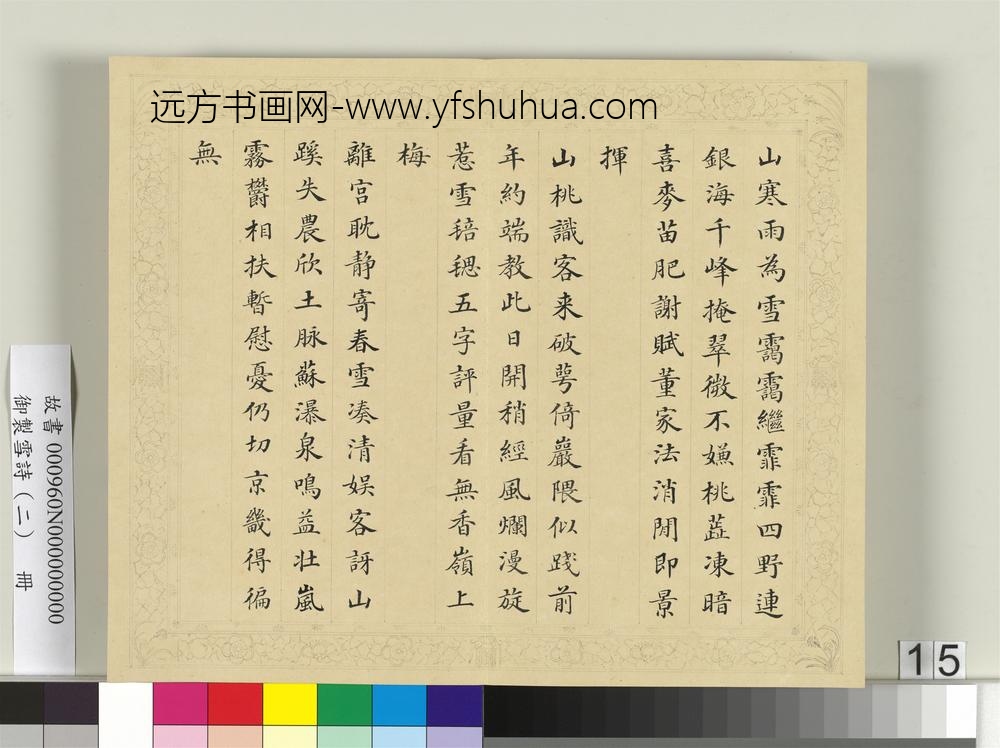 远方书画网-www.yfshuhua.com
山寒雨為雪靄靄繼霏霏四野連
銀海千峰掩翠微不嫌桃蕋凍暗
喜麥苗肥謝賦董家法消閒即景
揮
山桃識客来破萼倚巖隈似踐前
年約端教此日開稍經風爛漫旋
惹雪䔒毸五字評量看無香嶺上
梅
離宮耽静寄春雪凑清娱客訝山
蹊失農欣土脉蘇瀑泉鳴益壮嵐
霧欝相扶暫慰憂仍切京畿得徧
無
故書 000960N000000000
御製雪詩（二） 冊
15